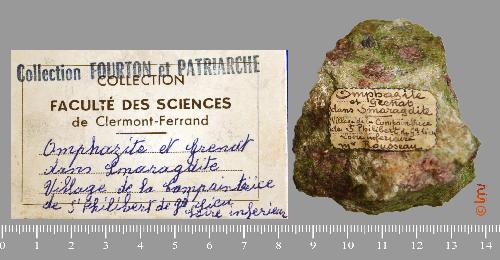 Collection FOURTON et PATRIARCHE
COLLECTION
FACULTÉ DES SCIENCES
de Clermont-Ferrand
Omphazite et Grenat
dans Smaragdite
Village de la Compaintrice
de St Philibert de gd Lieu
Loire inférieure
Omphazite
et Grenat
dans Smaragdite
Village de la Compaintrice
de St Philibert de gd Lieu
Loire inférieure
Mr Rousseau
0 1 2 3 4 5 6 7 8 9 10 11 12 13 14